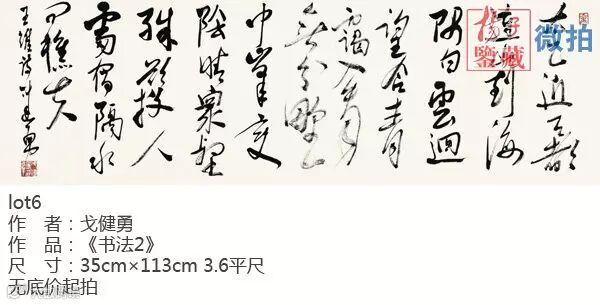 太乙近天都
連山到海
隅白雲迴
望合青
靄入看
無分野
中峯變
陰晴眾壑
殊欲投人
處宿隔水
问樵夫
王維詩
鑒藏
微拍
lot6
作 者：戈健勇
作 品：《书法2》
尺 寸：35cm×113cm 3.6平尺
无底价起拍